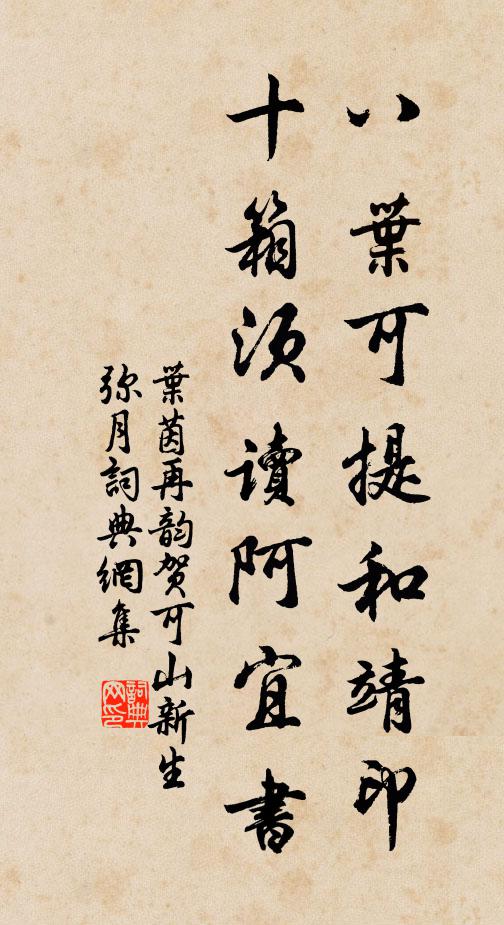 八葉可提和靖印
十箱須讀阿宜書
葉茵再韵贺可山新生
弥月詞典網集
詞典网印